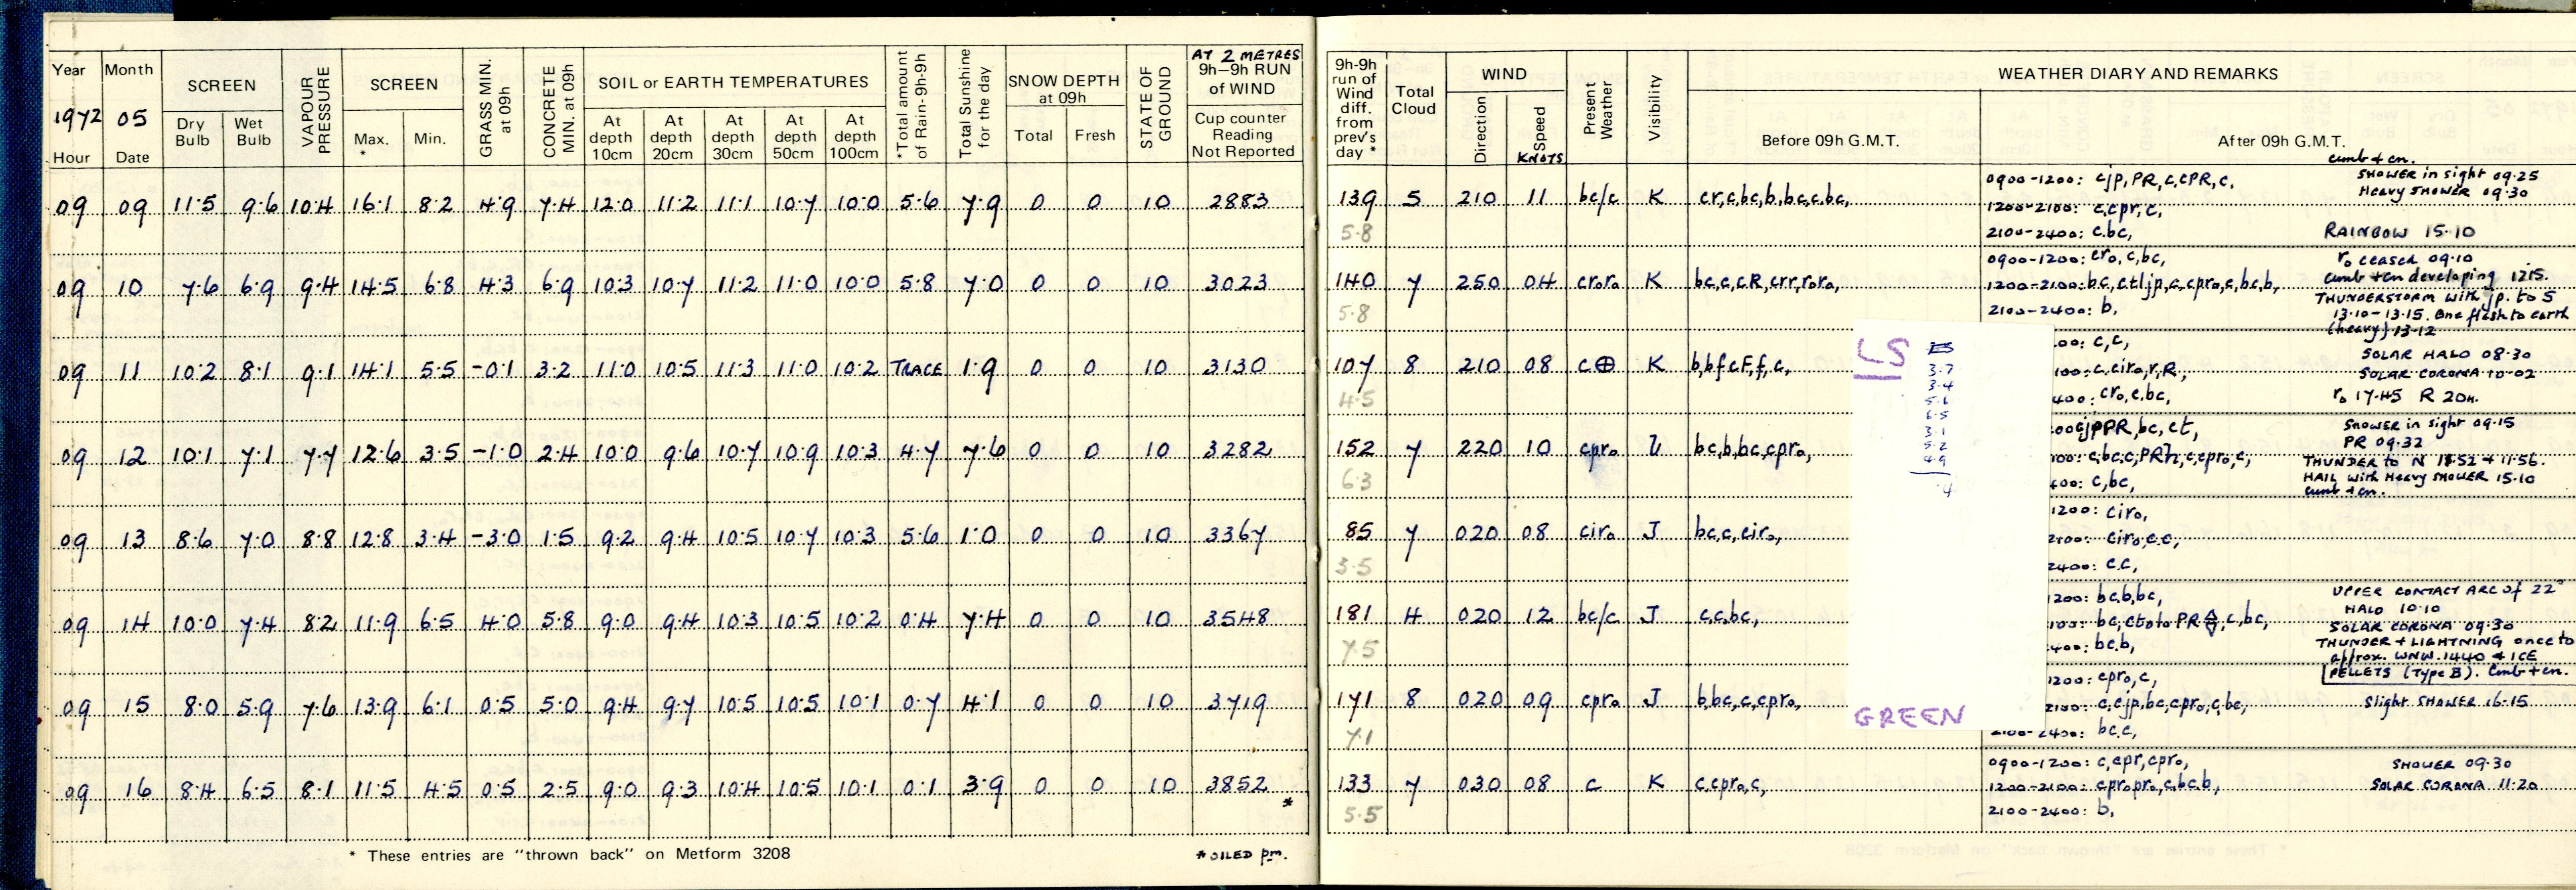 Year Month SCREEN VAPOUR PRESSURE SCREEN GRASS MIN. at 09h CONCRETE MIN. at 09h SOIL or EARTH TEMPERATURES *Total amount of Rain-9h-9h Total Sunshine for the day SNOW DEPTH at 09h STATE OF GROUND AT 2 METRES 9h-9h RUN of WIND
1972 05 Dry Bulb Wet Bulb Max. * Min. At depth 10cm At depth 20cm At depth 30cm At depth 50cm At depth 100cm Total Fresh Cup counter Reading Not Reported
Hour Date
09 09 11.5 9.6 10.4 16.1 8.2 4.9 7.4 12.0 11.2 11.1 10.7 10.0 5.6 7.9 0 0 10 2883
09 10 7.6 6.9 9.4 14.5 6.8 4.3 6.9 10.3 10.7 11.2 11.0 10.0 5.8 7.0 0 0 10 3023
09 11 10.2 8.1 9.1 14.1 5.5 -0.1 3.2 11.0 10.5 11.3 11.0 10.2 TRACE 1.9 0 0 10 3130
09 12 10.1 7.1 7.7 12.6 3.5 -1.0 2.4 10.0 9.6 10.7 10.9 10.3 4.7 7.6 0 0 10 3282
09 13 8.6 7.0 8.8 12.8 3.4 -3.0 1.5 9.2 9.4 10.5 10.7 10.3 5.6 1.0 0 0 10 3367
09 14 10.0 7.4 8.2 11.9 6.5 4.0 5.8 9.0 9.4 10.3 10.5 10.2 0.4 7.4 0 0 10 3548
09 15 8.0 5.9 7.6 13.9 6.1 0.5 5.0 9.4 9.7 10.5 10.5 10.1 0.7 4.1 0 0 10 3719
09 16 8.4 6.5 8.1 11.5 4.5 0.5 2.5 9.0 9.3 10.4 10.5 10.1 0.1 3.9 0 0 10 3852 *
* These entries are "thrown back" on Metform 3208
* OILED pm.
9h-9h run of Wind diff. from prev's day * Total Cloud WIND Direction Speed KNOTS Present Weather Visibility WEATHER DIARY AND REMARKS
Before 09h G.M.T. After 09h G.M.T.
cumb + cn.
139 5 210 11 bc/c K cr,c,bc,b,bc,c,bc,
5.8
0900-1200: cjp,PR,c,cPR,c, SHOWER in sight 09.25
Heavy SHOWER 09.30
1200-2100: c,cpr,c,
2100-2400: c,bc, RAINBOW 15.10
140 7 250 04 cr₀r₀ K bc,c,cR,crr,r₀r₀,
5.8
0900-1200: cr₀,c,bc, r₀ ceased 09.10
cumb + cn developing 1215.
1200-2100: bc,ctljp,c,cpr₀,c,bc,b,
THUNDERSTORM with jp. to S
2100-2400: b, 13.10-13.15. One flash to earth
(heavy) 13.12
107 8 210 08 c⊕ K b,bfcF,f,c,
4.5
00: c,c, SOLAR HALO 08.30
100: c,cir₀,r,R, SOLAR CORONA 10-02
400: cr₀,c,bc, r₀ 17.45 R 20H.
152 7 220 10 cpr₀ U bc,b,bc,cpr₀,
6.3
00: cjpPR,bc,ct, SHOWER in sight 09.15
PR 09.32
100: c,bc,c,PRh,c,cpr₀,c, THUNDER to N 11.52 + 11.56.
400: c,bc, HAIL with Heavy SHOWER 15.10
cumb + cn.
85 7 020 08 cir₀ J bc,c,cir₀,
3.5
1200: cir₀,
2100: cir₀,c,c,
2400: c,c,
181 4 020 12 bc/c J c,c,bc,
7.5
1200: bc,b,bc, UPPER CONTACT ARC of 22°
HALO 10.10
100: bc,ct₀t₀PR,c,bc, SOLAR CORONA 09.30
400: bc,b, THUNDER + LIGHTNING once to
approx. WNW. 1440 + ICE
PELLETS (Type B). Cumb + cn.
171 8 020 09 cpr₀ J b,bc,c,cpr₀,
7.1
1200: cpr₀,c,
2100: c,cjp,bc,cpr₀,c,bc, Slight SHOWER 16.15
2100-2400: bc,c,
133 7 030 08 c K c,cpr₀,c,
5.5
0900-1200: c,cpr,cpr₀, SHOWER 09.30
1200-2100: cpr₀pr₀,c,bc,b, SOLAR CORONA 11.20
2100-2400: b,
LS
3.7
3.4
5.6
6.5
3.1
5.2
4.9
.4
GREEN